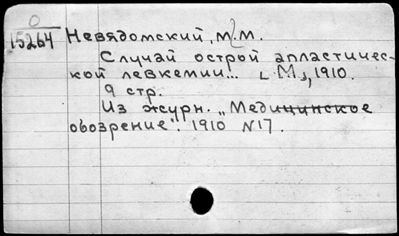 0
15264 Невядомский, М.М.
Случай острой апластичес-
кой левкемии... [М], 1910.
9 стр.
Из журн. „Медицинское
обозрение". 1910 №17.